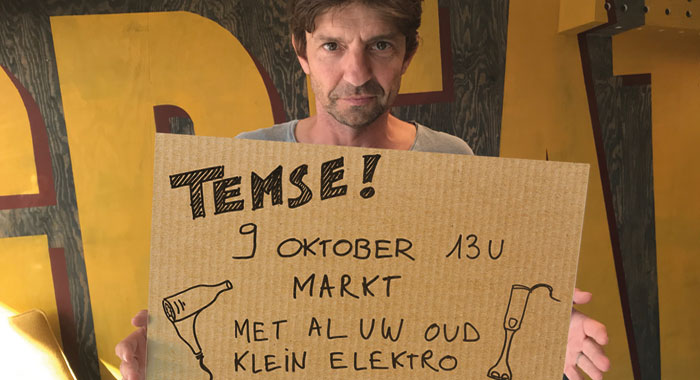 TEMSE!
9 OKTOBER 13U
MARKT
MET AL UW OUD
KLEIN ELEKTRO